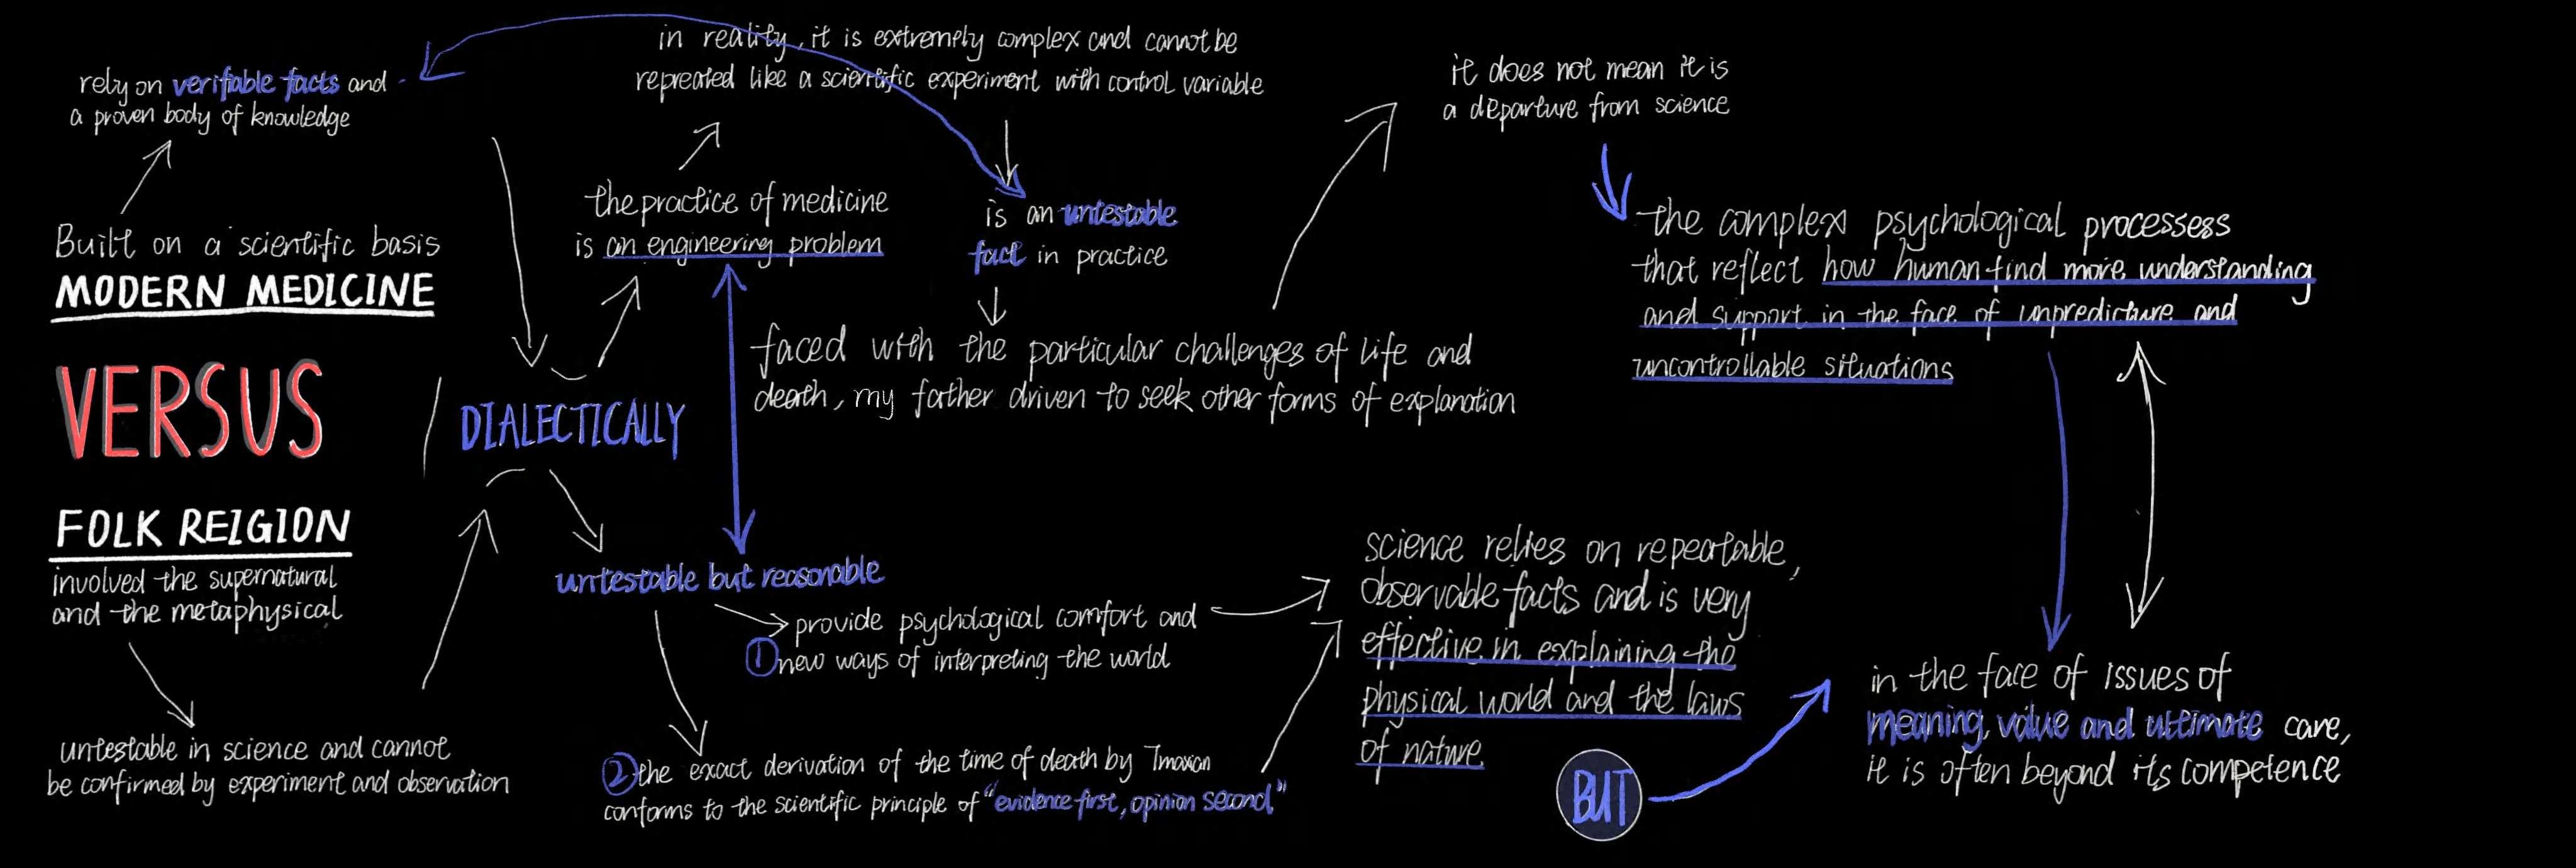 rely on verifiable facts and
a proven body of knowledge
Built on a scientific basis
MODERN MEDICINE
VERSUS
FOLK REIGION
involved the supernatural
and the metaphysical
untestable in science and cannot
be confirmed by experiment and observation
DIALECTICALLY
in reality, it is extremely complex and cannot be
repreated like a scientific experiment with control variable
the practice of medicine
is an engineering problem
is an untestable
fact in practice
faced with the particular challenges of life and
death, my father driven to seek other forms of explanation
untestable but reasonable
provide psychological comfort and
① new ways of interpreting the world
② the exact derivation of the time of death by
conforms to the scientific principle of "evidence first, opinion second"
it does not mean it is
a departure from science
the complex psychological processess
that reflect how human find more understanding
and support in the face of unpredicture and
uncontrollable situations
science relies on repeatable,
observable facts and is very
effective in explaining the
physical world and the laws
of nature
BUT
in the face of issues of
meaning, value and ultimate care,
it is often beyond its competence